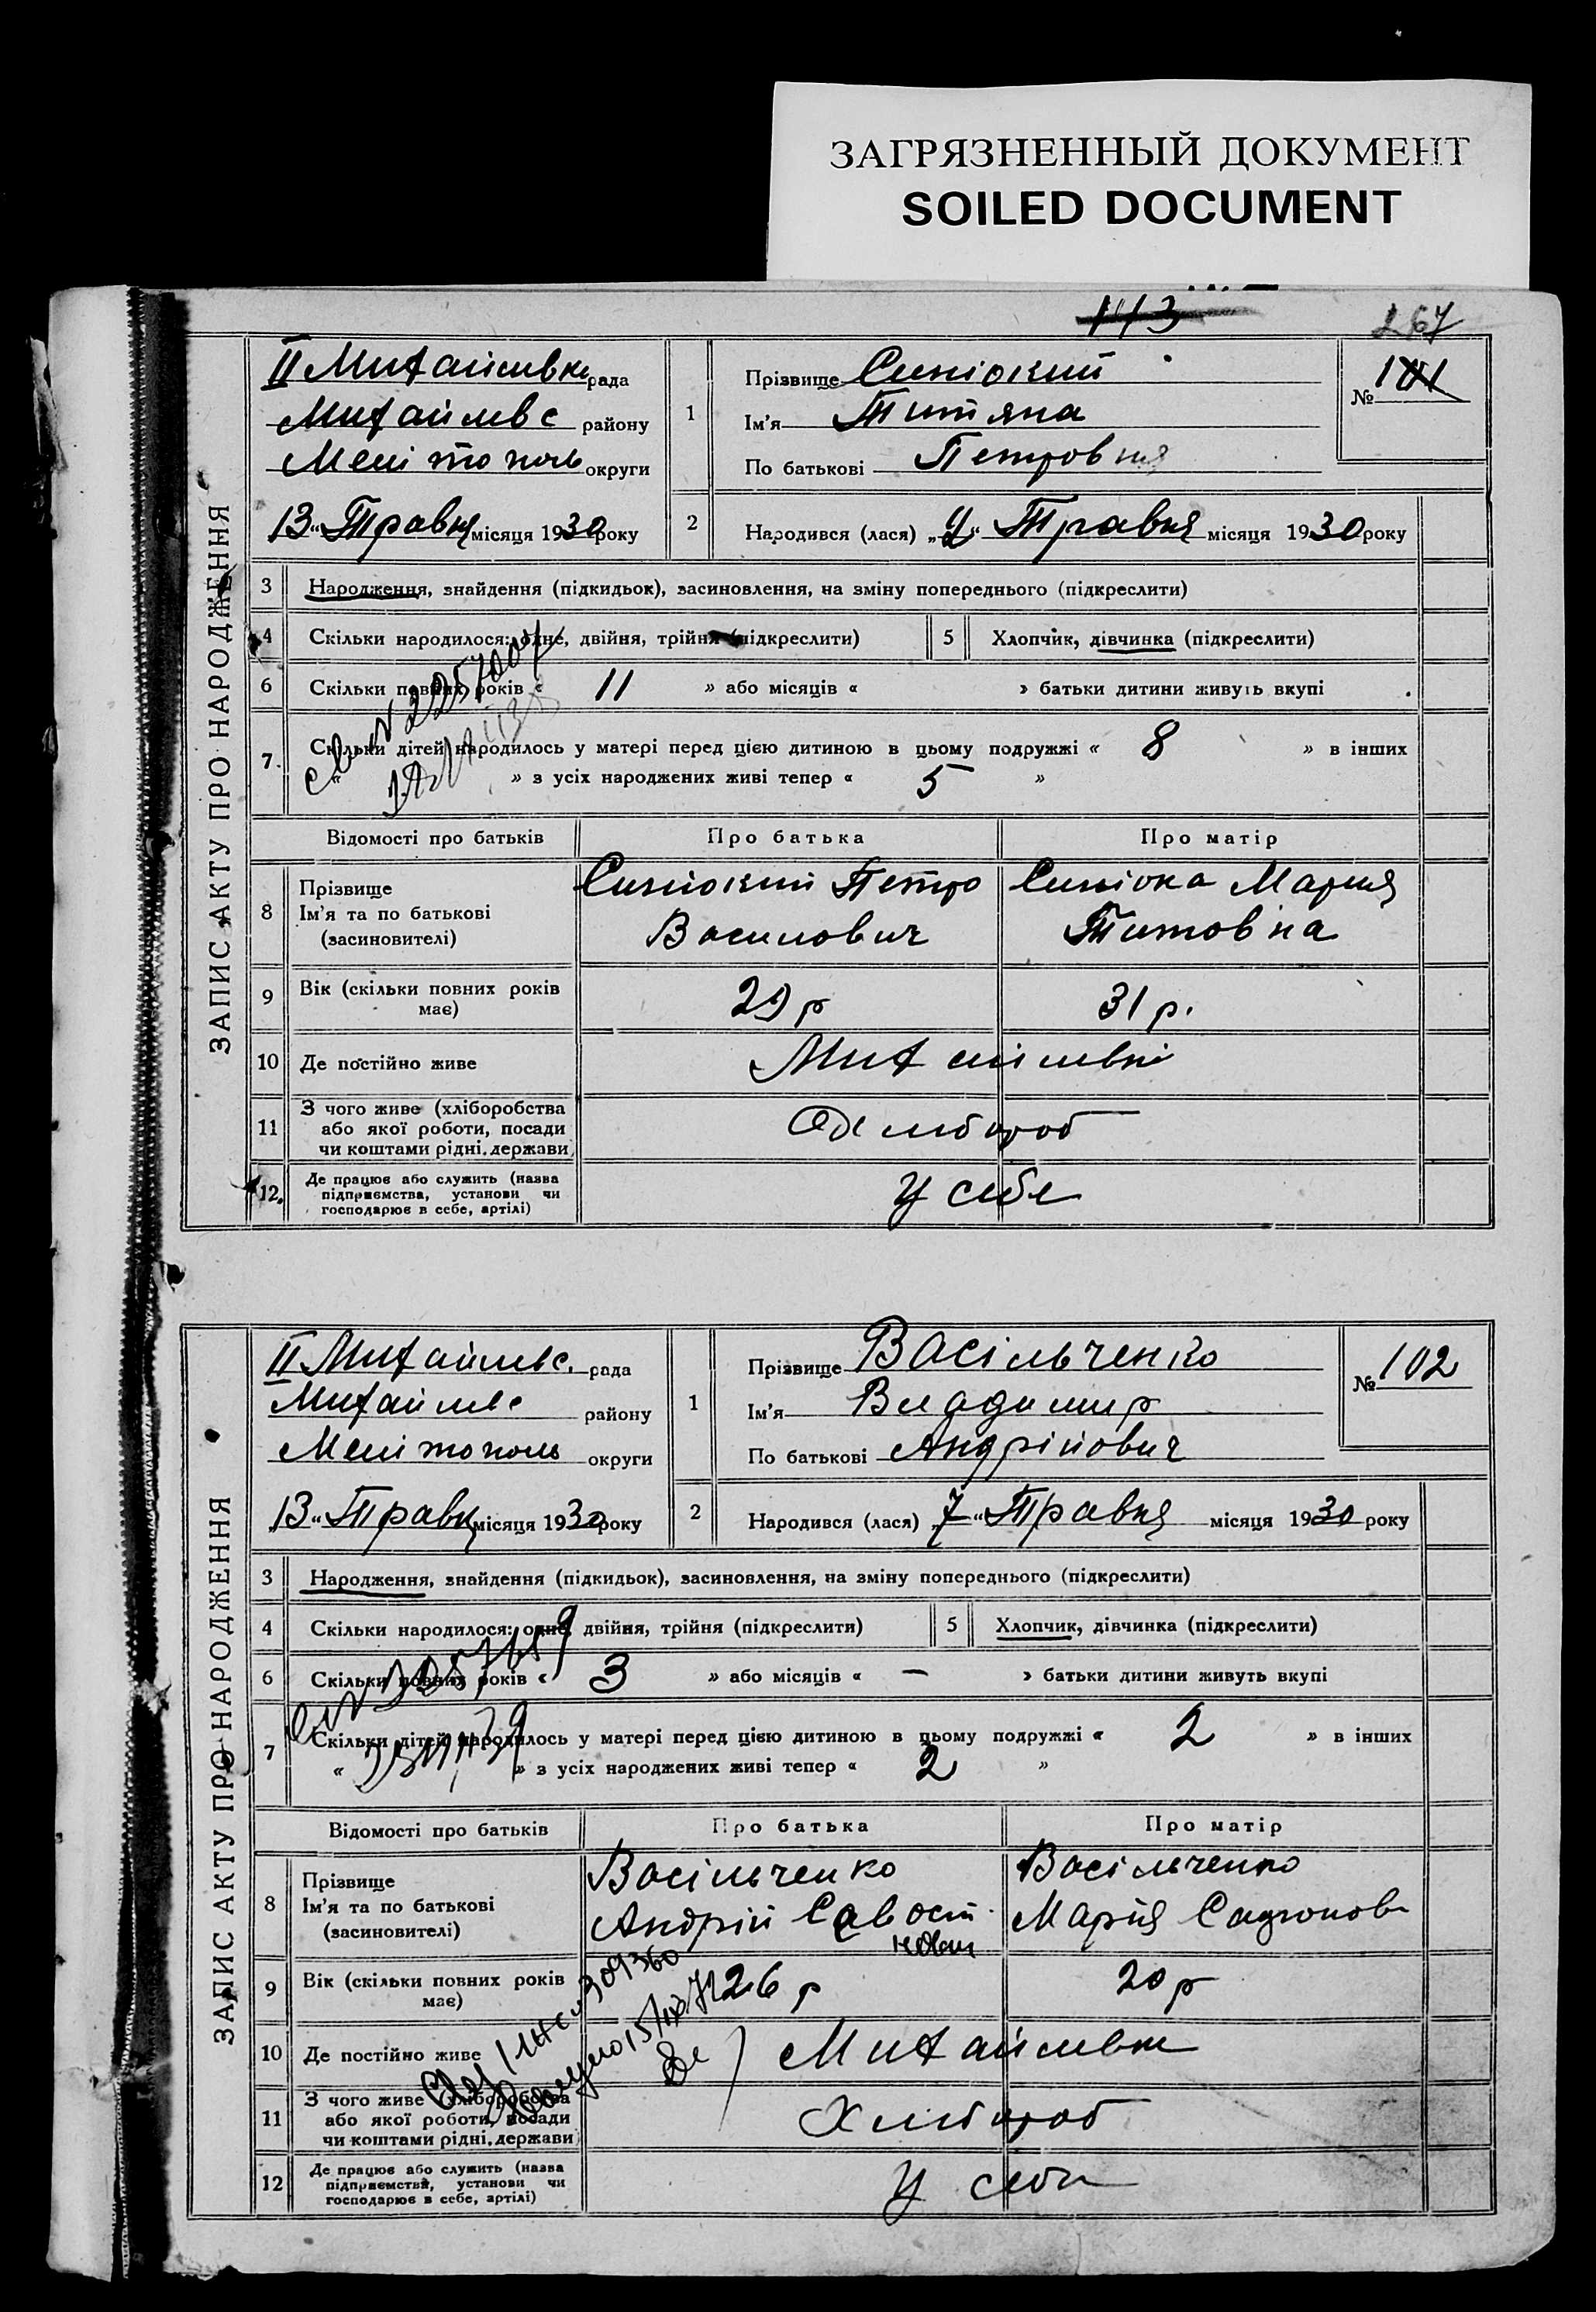 ЗАГРЯЗНЕННЫЙ ДОКУМЕНТ
SOILED DOCUMENT
113
267
ЗАПИС АКТУ ПРО НАРОДЖЕННЯ
II Михайлівк рада
Михайлівс району
Мелітополь округи
13 „ Травня місяця 1930 року
1
Прізвище
Ім'я Титяна
По батькові Петровня
№ 101
2
Народився (лася) „ “ Травня місяця 1930 року
3 Народження, знайдення (підкидьок), засиновлення, на зміну попереднього (підкреслити)
4 Скільки народилося: одне, двійня, трійня (підкреслити)
5 Хлопчик, дівчинка (підкреслити)
6 Скільки повних років « 11 » або місяців « » батьки дитини живуть вкупі
7. Скільки дітей народилось у матері перед цією дитиною в цьому подружжі « 8 » в інших
« » з усіх народжених живі тепер « 5 »
Відомості про батьків
Про батька
Про матір
8
Прізвище
Ім'я та по батькові
(засиновителі)
Петро
Василович
Мария
Титовна
9 Вік (скільки повних років має)
29 р
31 р.
10 Де постійно живе
Михайлівкі
11 З чого живе (хліборобства
або якої роботи, посади
чи коштами рідні, держави
12. Де працює або служить (назва
підприємства, установи чи
господарює в себе, артілі)
У себе
ЗАПИС АКТУ ПРО НАРОДЖЕННЯ
II Михайлівс. рада
Михайлівс району
Мелітополь округи
„13“ Травн місяця 1930 року
1
Прізвище Васільченко
Ім'я Владимир
По батькові Андрійович
№ 102
2
Народився (лася) „7“ Травня місяця 1930 року
3 Народження, знайдення (підкидьок), засиновлення, на зміну попереднього (підкреслити)
4 Скільки народилося: одне, двійня, трійня (підкреслити)
5 Хлопчик, дівчинка (підкреслити)
6 Скільки повних років « 3 » або місяців « — » батьки дитини живуть вкупі
7 Скільки дітей народилось у матері перед цією дитиною в цьому подружжі « 2 » в інших
« » з усіх народжених живі тепер « 2 »
Відомості про батьків
Про батька
Про матір
8
Прізвище
Ім'я та по батькові
(засиновителі)
Васільченко
Андрій
Васільченко
Марія
9 Вік (скільки повних років має)
26 р
20 р
10 Де постійно живе
Михайлівки
11 З чого живе (хліборобства
або якої роботи, посади
чи коштами рідні, держави
Хлібороб
12 Де працює або служить (назва
підприємства, установи чи
господарює в себе, артілі)
У себе